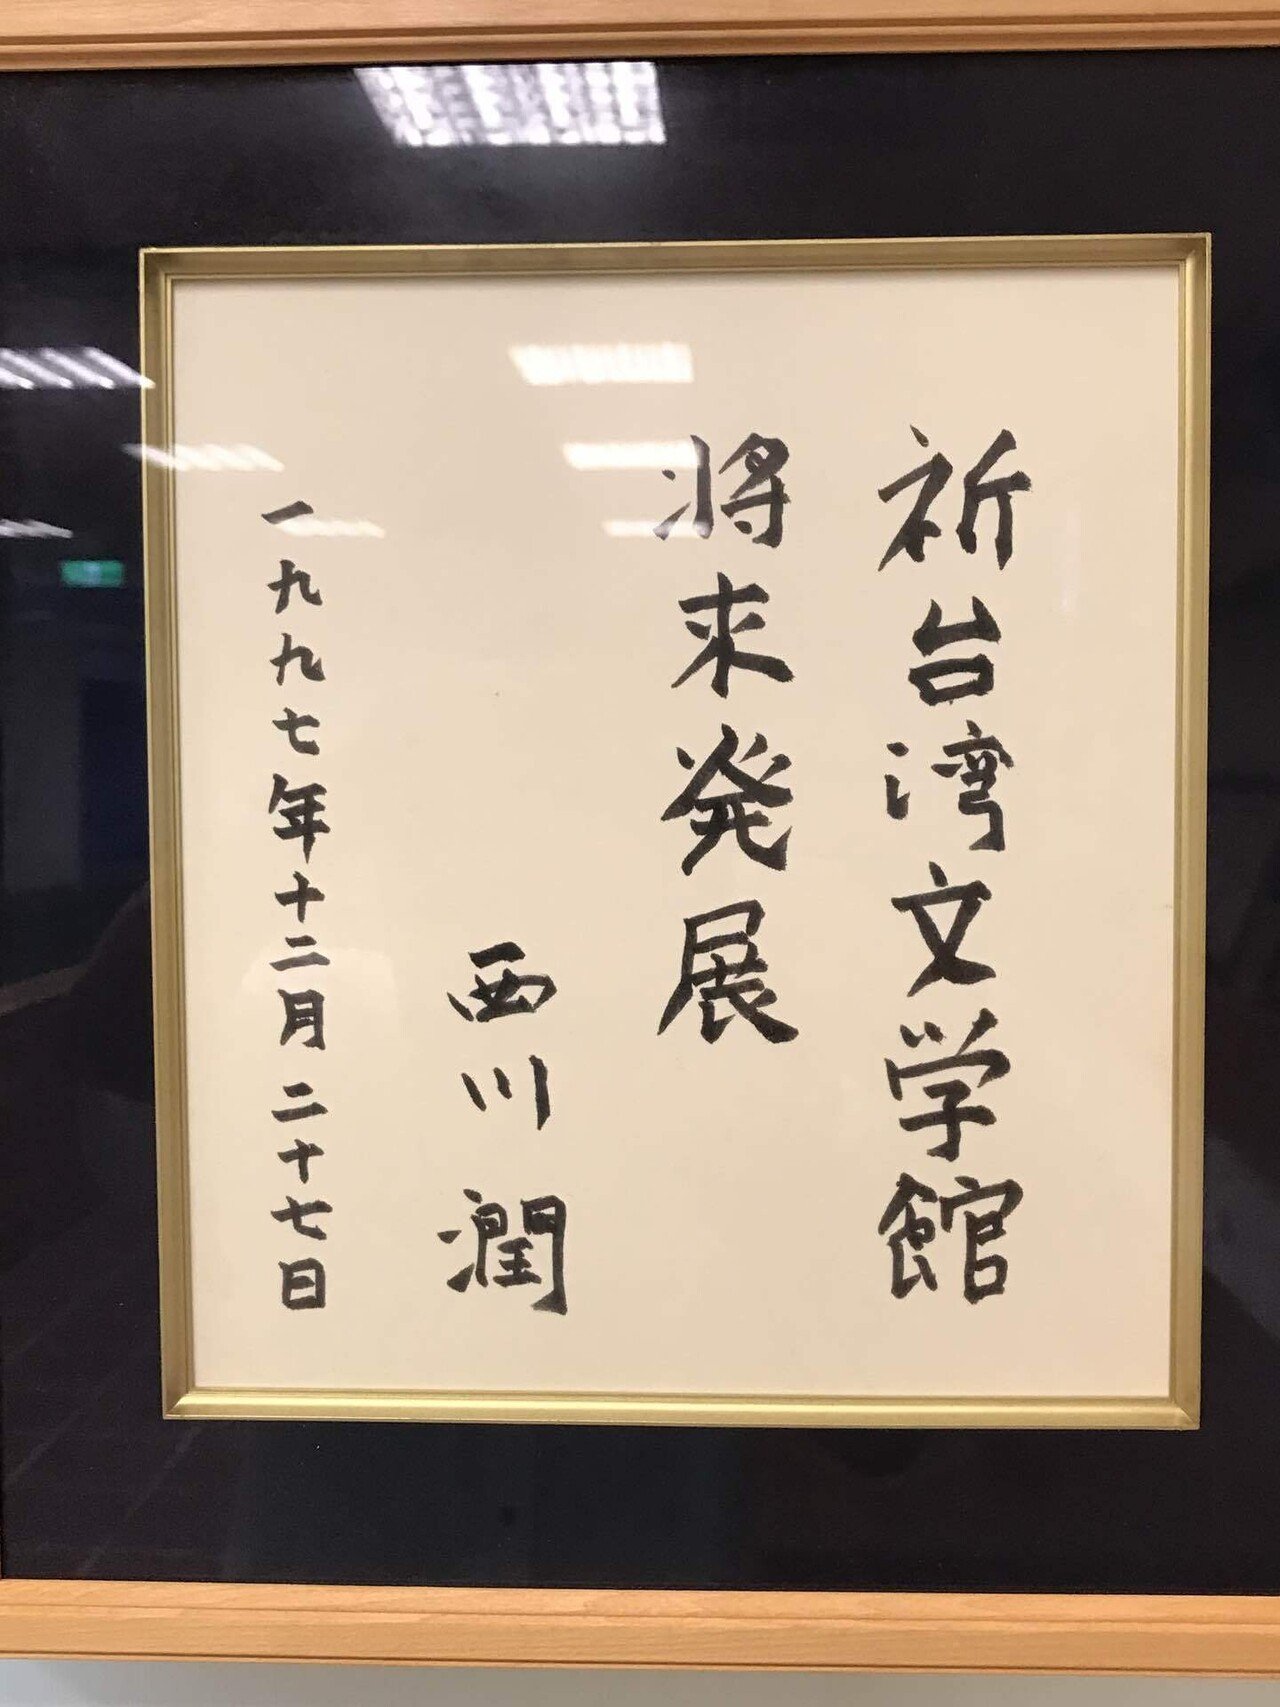 祈台湾文学館
将来発展
西川潤
一九九七年十二月二十七日